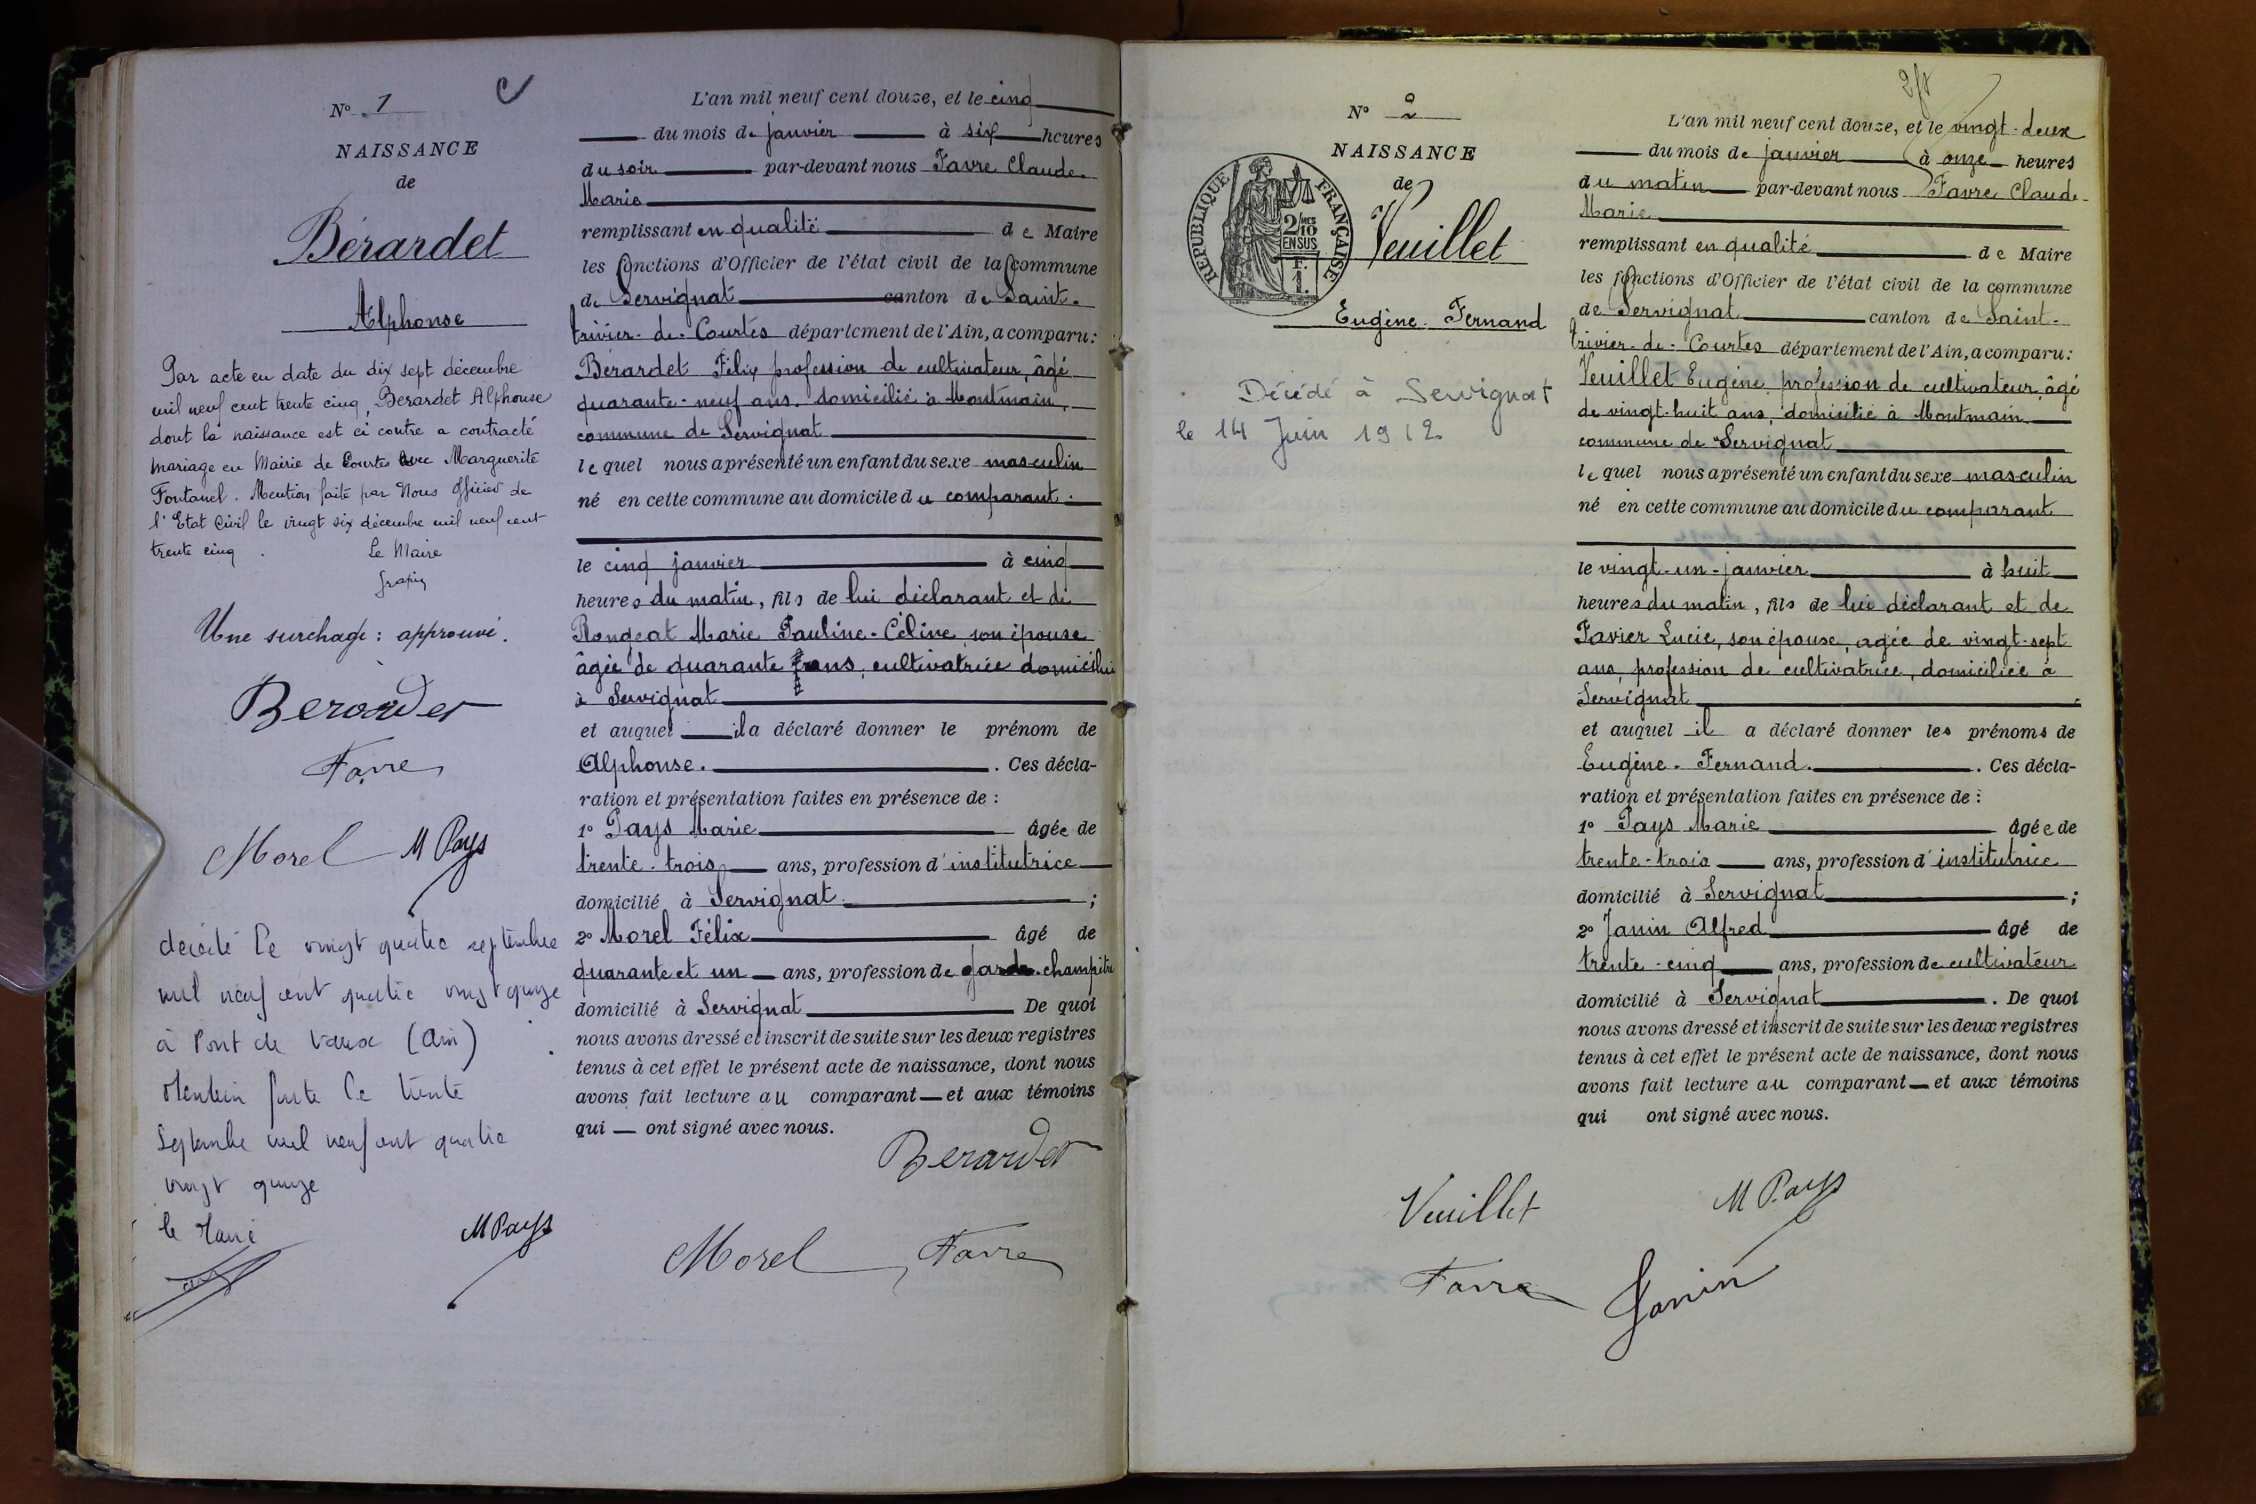 N° 1
NAISSANCE
de
Bérardet
Alphonse
Par acte en date du dix sept décembre
mil neuf cent trente cinq, Berardet Alphonse
dont la naissance est ci contre a contracté
mariage en Mairie de Courtes avec Marguerite
Fontanel. Mention faite par Nous Officier de
l'Etat Civil le vingt six décembre mil neuf cent
trente cinq.
Le Maire
Une surchage : approuvé.
Berardet
Favre
Morel M Pays
decédé le vingt quatre septembre
mil neuf cent quatre vingt quinze
à Pont de Vaux (Ain)
Mention faite le trente
Septembre mil neuf cent quatre
vingt quinze
le Maire
L'an mil neuf cent douze, et le cinq
du mois de janvier à six heures
du soir par-devant nous Favre Claude-
Marie
remplissant en qualité de Maire
les fonctions d'Officier de l'état civil de la commune
de Servignat canton de Saint-
trivier-de-Courtes département de l'Ain, a comparu :
Bérardet Félix profession de cultivateur, âgé
quarante-neuf ans. domicilié à Montmain,
commune de Servignat
lequel nous a présenté un enfant du sexe masculin
né en cette commune au domicile du comparant.
le cinq janvier à cinq
heures du matin, fils de lui déclarant et de
Rongeat Marie Pauline-Céline, son épouse
âgée de quarante ans, cultivatrice domiciliée
à Servignat
et auquel il a déclaré donner le prénom de
Alphonse. . Ces décla-
ration et présentation faites en présence de :
1° Pays Marie âgée de
trente-trois ans, profession d'institutrice
domicilié à Servignat ;
2° Morel Félix âgé de
quarante et un ans, profession de garde-champêtre
domicilié à Servignat De quoi
nous avons dressé et inscrit de suite sur les deux registres
tenus à cet effet le présent acte de naissance, dont nous
avons fait lecture au comparant et aux témoins
qui ont signé avec nous.
Berardet
M Pays
Morel Favre
N° 2
NAISSANCE
de
RÉPUBLIQUE FRANÇAISE
2/10 MES
EN SUS
F.
1.
Veuillet
Eugène-Fernand
Décédé à Servignat
le 14 Juin 1912
L'an mil neuf cent douze, et le vingt-deux
du mois de janvier à onze heures
du matin par-devant nous Favre Claude-
Marie
remplissant en qualité de Maire
les fonctions d'Officier de l'état civil de la commune
de Servignat canton de Saint-
trivier-de-Courtes département de l'Ain, a comparu :
Veuillet Eugène profession de cultivateur, âgé
de vingt-huit ans, domicilié à Montmain
commune de Servignat
lequel nous a présenté un enfant du sexe masculin
né en cette commune au domicile du comparant
le vingt-un-janvier à huit
heures du matin, fils de lui déclarant et de
Favier Lucie, son épouse, agée de vingt-sept
ans, profession de cultivatrice, domiciliée à
Servignat
et auquel il a déclaré donner les prénoms de
Eugène-Fernand. . Ces décla-
ration et présentation faites en présence de :
1° Pays Marie âgée de
trente-trois ans, profession d'institutrice
domicilié à Servignat ;
2° Janin Alfred âgé de
trente-cinq ans, profession de cultivateur
domicilié à Servignat . De quoi
nous avons dressé et inscrit de suite sur les deux registres
tenus à cet effet le présent acte de naissance, dont nous
avons fait lecture au comparant et aux témoins
qui ont signé avec nous.
Veuillet M Pays
Favre Janin